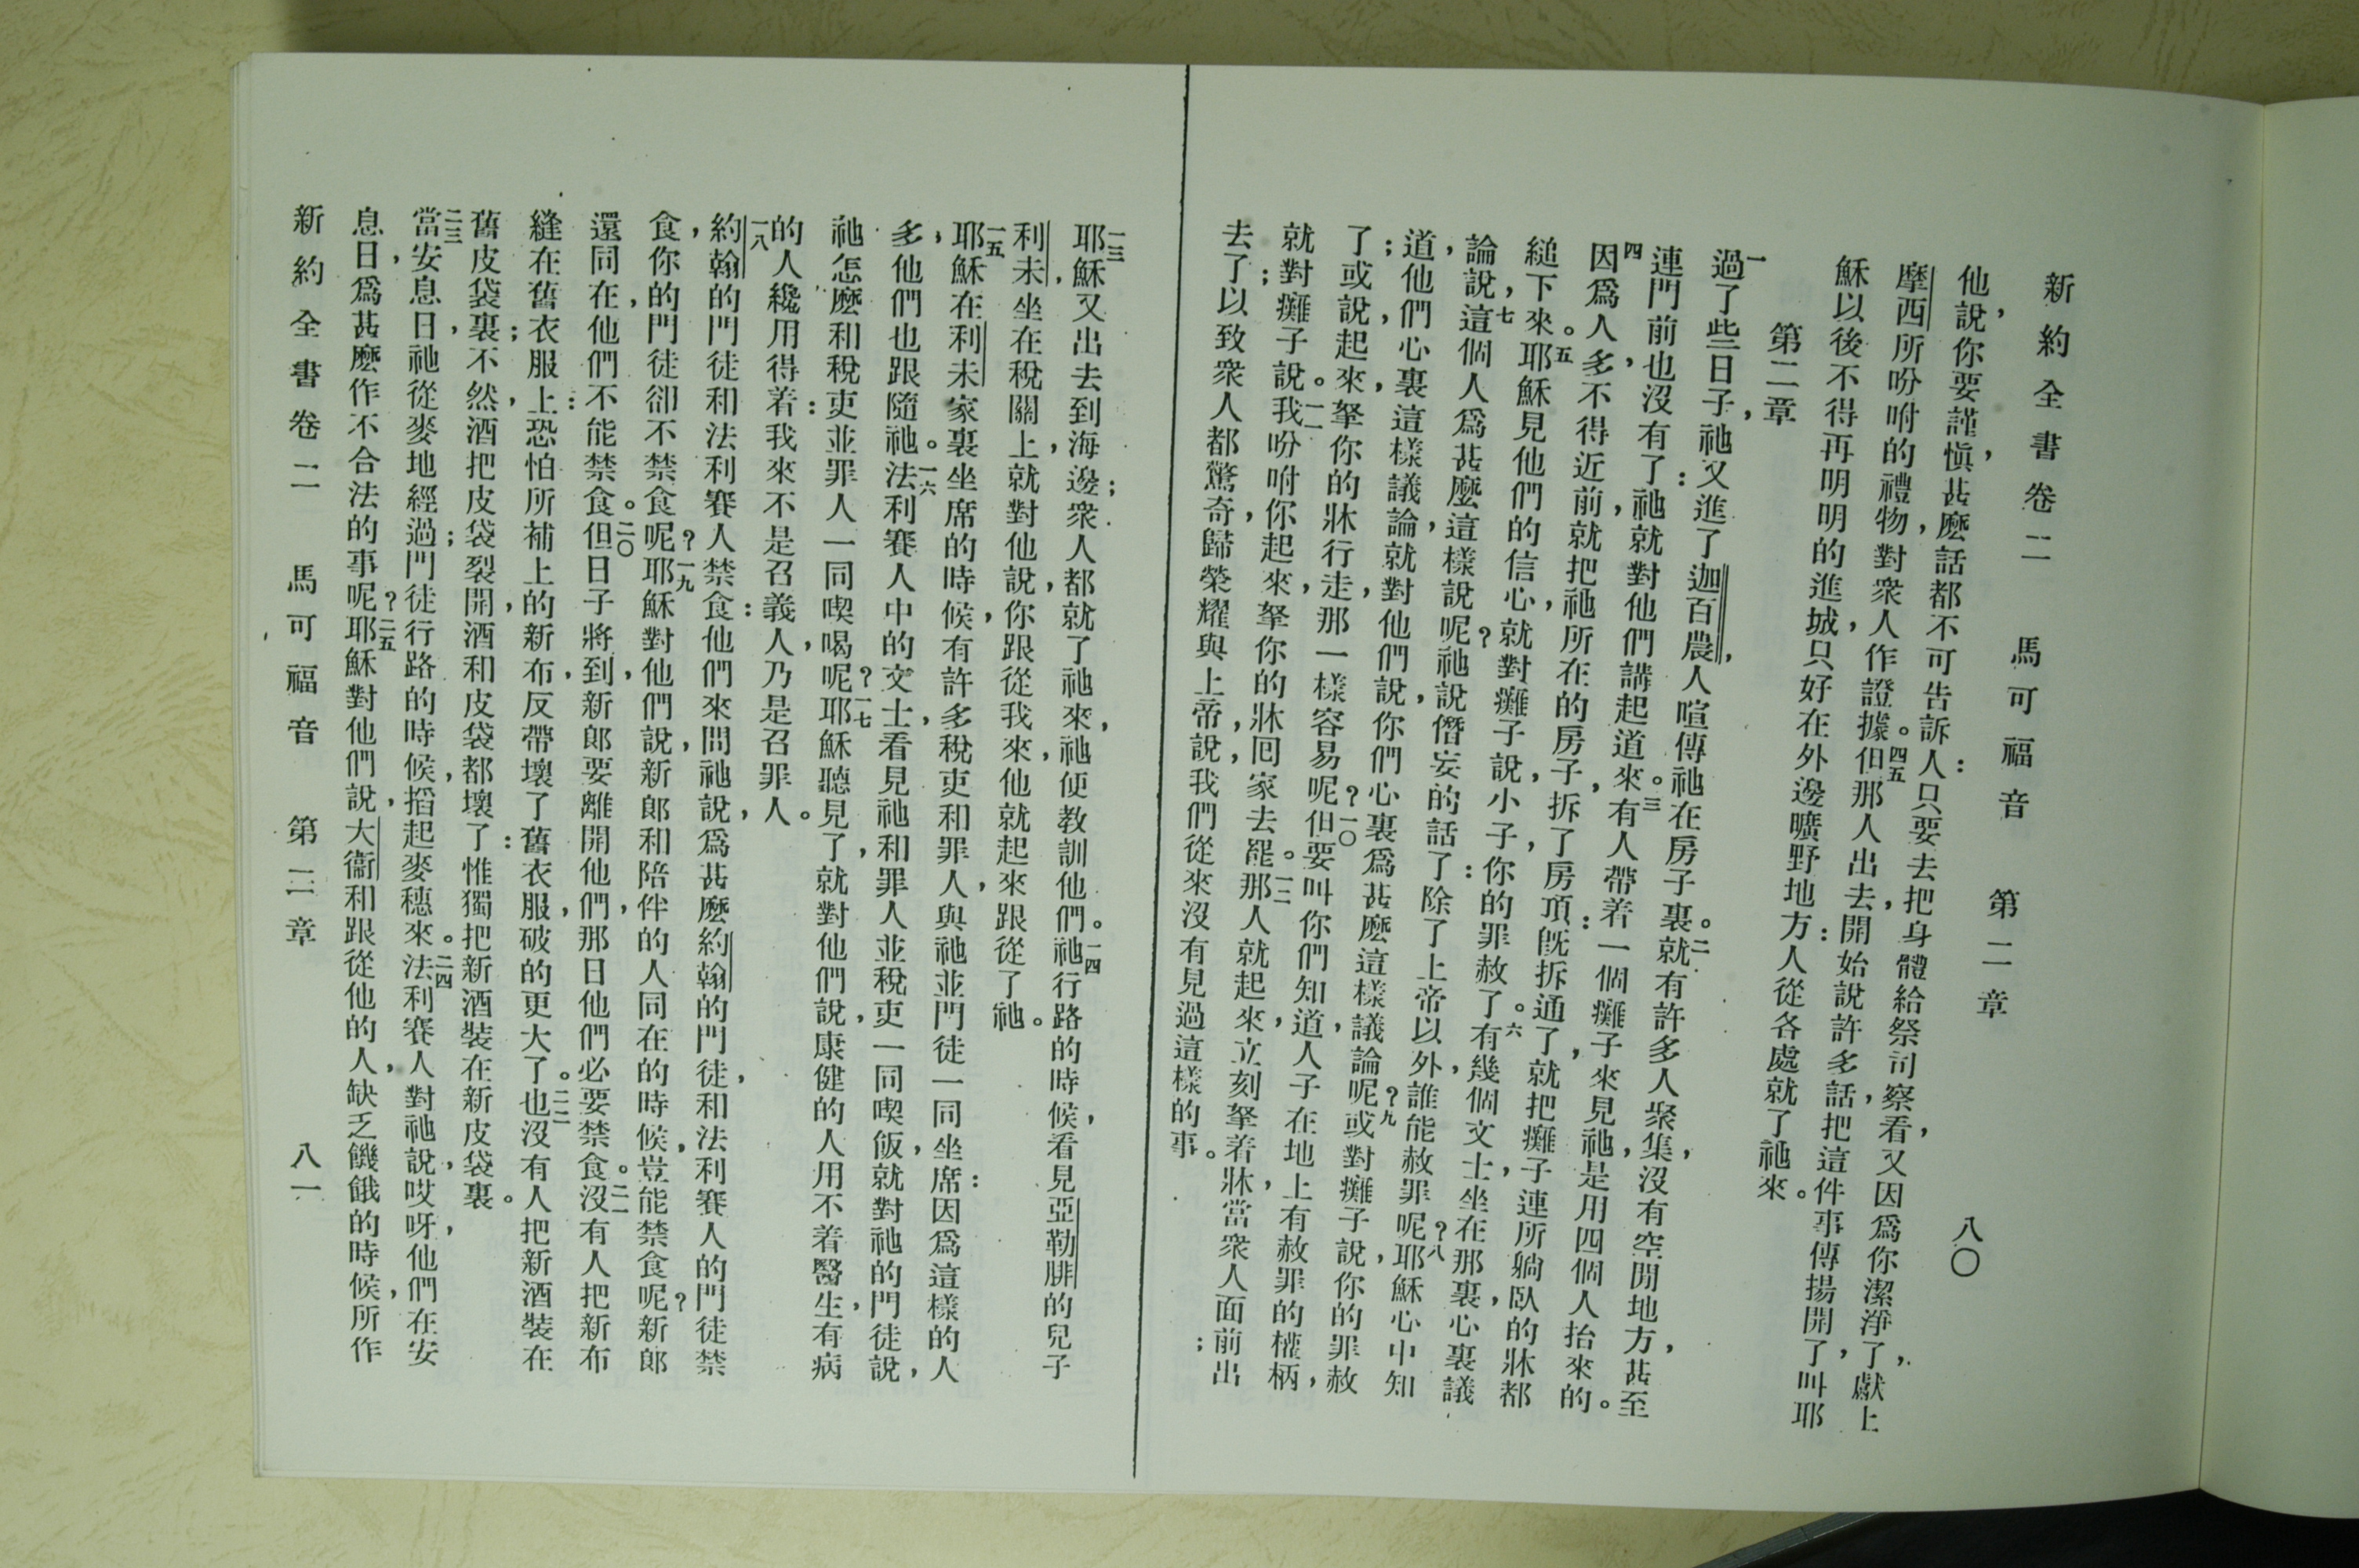 新約全書卷二　馬可福音　第二章　八〇
他，說你要謹愼，甚麼話都不可告訴人：只要去把身體給祭司察看，又因爲你潔淨了，獻上
摩西所吩咐的禮物，對衆人作證據。四五但那人出去，開始說許多話，把這件事傳揚開了，叫耶
穌以後不得再明明的進城，只好在外邊曠野地方：人從各處就了祂來。
第二章
一過了些日子，祂又進了迦百農，人喧傳祂在房子裏。二就有許多人聚集，沒有空閒地方，甚至
連門前也沒有了：祂就對他們講起道來。三有人帶着一個癱子來見祂，是用四個人抬來的。
四因爲人多，不得近前，就把祂所在的房子，拆了房頂：旣拆通了，就把癱子連所躺臥的牀都
縋下來。五耶穌見他們的信心，就對癱子說，小子，你的罪赦了。六有幾個文士，坐在那裏，心裏議
論，七說這個人爲甚麼這樣說呢？祂說僭妄的話了：除了上帝以外，誰能赦罪呢？八耶穌心中知
道，他們心裏這樣議論，就對他們說，你們心裏爲甚麼這樣議論呢？九或對癱子說，你的罪赦
了；或說起來，拏你的牀行走，那一樣容易呢？一〇但要叫你們知道，人子在地上有赦罪的權柄，
就對癱子說。一一我吩咐你起來，拏你的牀回家去罷。一二那人就起來，立刻拏着牀，當衆人面前出
去了；以致衆人都驚奇，歸榮耀與上帝，說，我們從來沒有見過這樣的事。
一三耶穌又出去到海邊；衆人都就了祂來，祂便教訓他們。一四祂行路的時候，看見亞勒腓的兒子
利未，坐在稅關上，就對他說，你跟從我來，他就起來跟從了祂。
一五耶穌在利未家裏坐席的時候，有許多稅吏和罪人，與祂並門徒一同坐席：因爲這樣的人
多，他們也跟隨祂。一六法利賽人中的文士，看見祂和罪人並稅吏一同喫飯，就對祂的門徒說，
祂怎麼和稅吏並罪人一同喫喝呢？一七耶穌聽見了，就對他們說，康健的人用不着醫生，有病
的人纔用得着：我來不是召義人，乃是召罪人。
一八約翰的門徒和法利賽人禁食：他們來問祂說，爲甚麼約翰的門徒，和法利賽人的門徒禁
食，你的門徒卻不禁食呢？一九耶穌對他們說，新郞和陪伴的人同在的時候，豈能禁食呢？新郞
還同在，他們不能禁食。二〇但日子將到，新郞要離開他們，那日他們必要禁食。二一沒有人把新布
縫在舊衣服上：恐怕所補上的新布，反帶壞了舊衣服，破的更大了。二二也沒有人把新酒裝在
舊皮袋裏；不然，酒把皮袋裂開，酒和皮袋都壞了：惟獨把新酒裝在新皮袋裏。
二三當安息日，祂從麥地經過；門徒行路的時候，搯起麥穗來。二四法利賽人對祂說，哎呀，他們在安
息日，爲甚麼作不合法的事呢？二五耶穌對他們說，大衞和跟從他的人，缺乏饑餓的時候，所作
新約全書卷二　馬可福音　第二章　八一